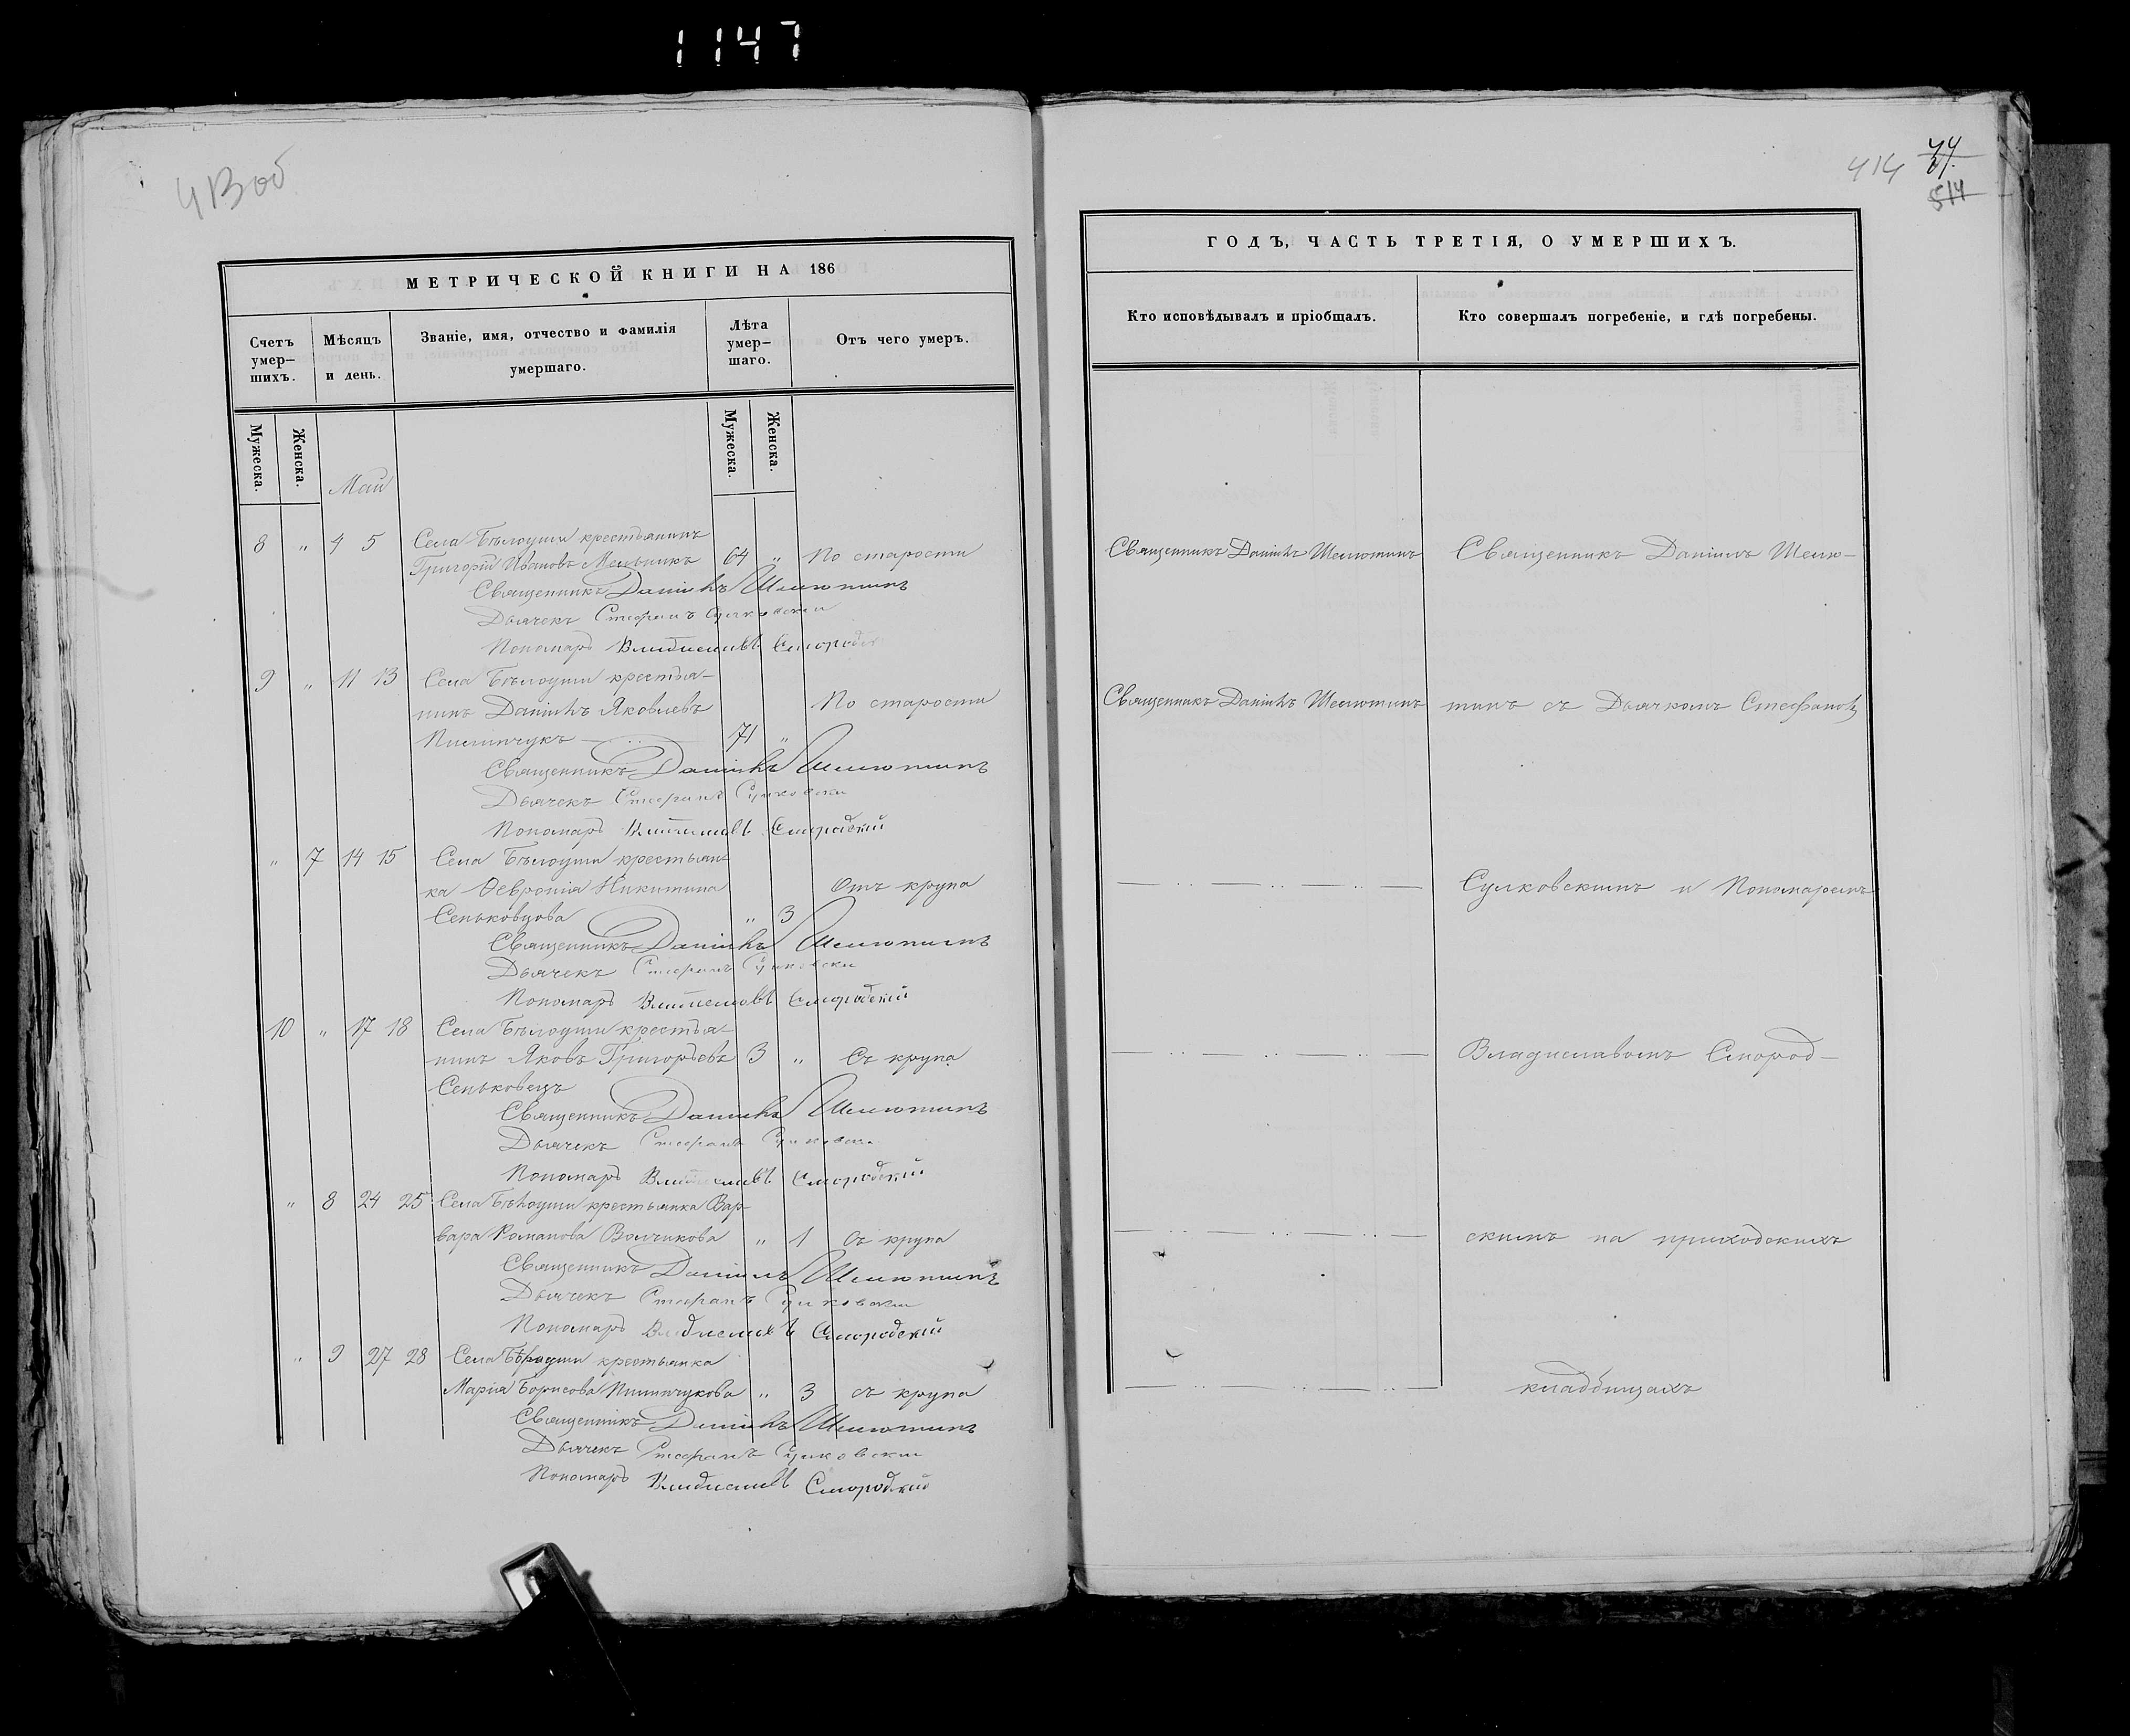 1147
413 об
МЕТРИЧЕСКОЙ КНИГИ НА 186
Счетъ умер-шихъ.
Мѣсяцъ и день.
Званіе, имя, отчество и фамилія умершаго.
Лѣта умер-шаго.
Отъ чего умеръ.
Мужеска.
Женска.
Мужеска.
Женска.
Май
8 " 4 5 Села Бѣлоуши крестьянинъ
Григорій Ивановъ Мельникъ 64 " По старости
Священникъ Даніилъ Шелютинъ
Дьячекъ Стефанъ Сулковскій
Пономарь Владиславъ Смородскій
9 " 11 13 Села Бѣлоуши крестья-
нинъ Даніилъ Яковлевъ По старости
Пилипчукъ 71 "
Священникъ Даніилъ Шелютинъ
Дьячекъ Стефанъ Сулковскій
Пономарь Владиславъ Смородскій
" 7 14 15 Села Бѣлоуши крестьян-
ка Февронія Никитина Отъ крупа
Сеньковцова " 3
Священникъ Даніилъ Шелютинъ
Дьячекъ Стефанъ Сулковскій
Пономарь Владиславъ Смородскій
10 " 17 18 Села Бѣлоуши крестья-
нинъ Яковъ Григорьевъ 3 " Съ крупа
Сеньковецъ
Священникъ Даніилъ Шелютинъ
Дьячекъ Стефанъ Сулковскій
Пономарь Владиславъ Смородскій
" 8 24 25 Села Бѣлоуши крестьянка Вар-
вара Романова Волчикова " 1 Съ крупа
Священникъ Даніилъ Шелютинъ
Дьячекъ Стефанъ Сулковскій
Пономарь Владиславъ Смородскій
" 9 27 28 Села Бѣлоуши крестьянка
Марія Борисова Пилипчукова " 3 съ крупа
Священникъ Даніилъ Шелютинъ
Дьячекъ Стефанъ Сулковскій
Пономарь Владиславъ Смородскій
414
514
ГОДЪ, ЧАСТЬ ТРЕТІЯ, О УМЕРШИХЪ.
Кто исповѣдывалъ и пріобщалъ.
Кто совершалъ погребеніе, и гдѣ погребены.
Священникъ Даніилъ Шелютинъ Священникъ Даніилъ Шелю-
Священникъ Даніилъ Шелютинъ тинъ съ Дьячкомъ Стефаномъ
Сулковскимъ и Пономаремъ
Владиславомъ Смород-
скимъ на приходскихъ
кладбищахъ